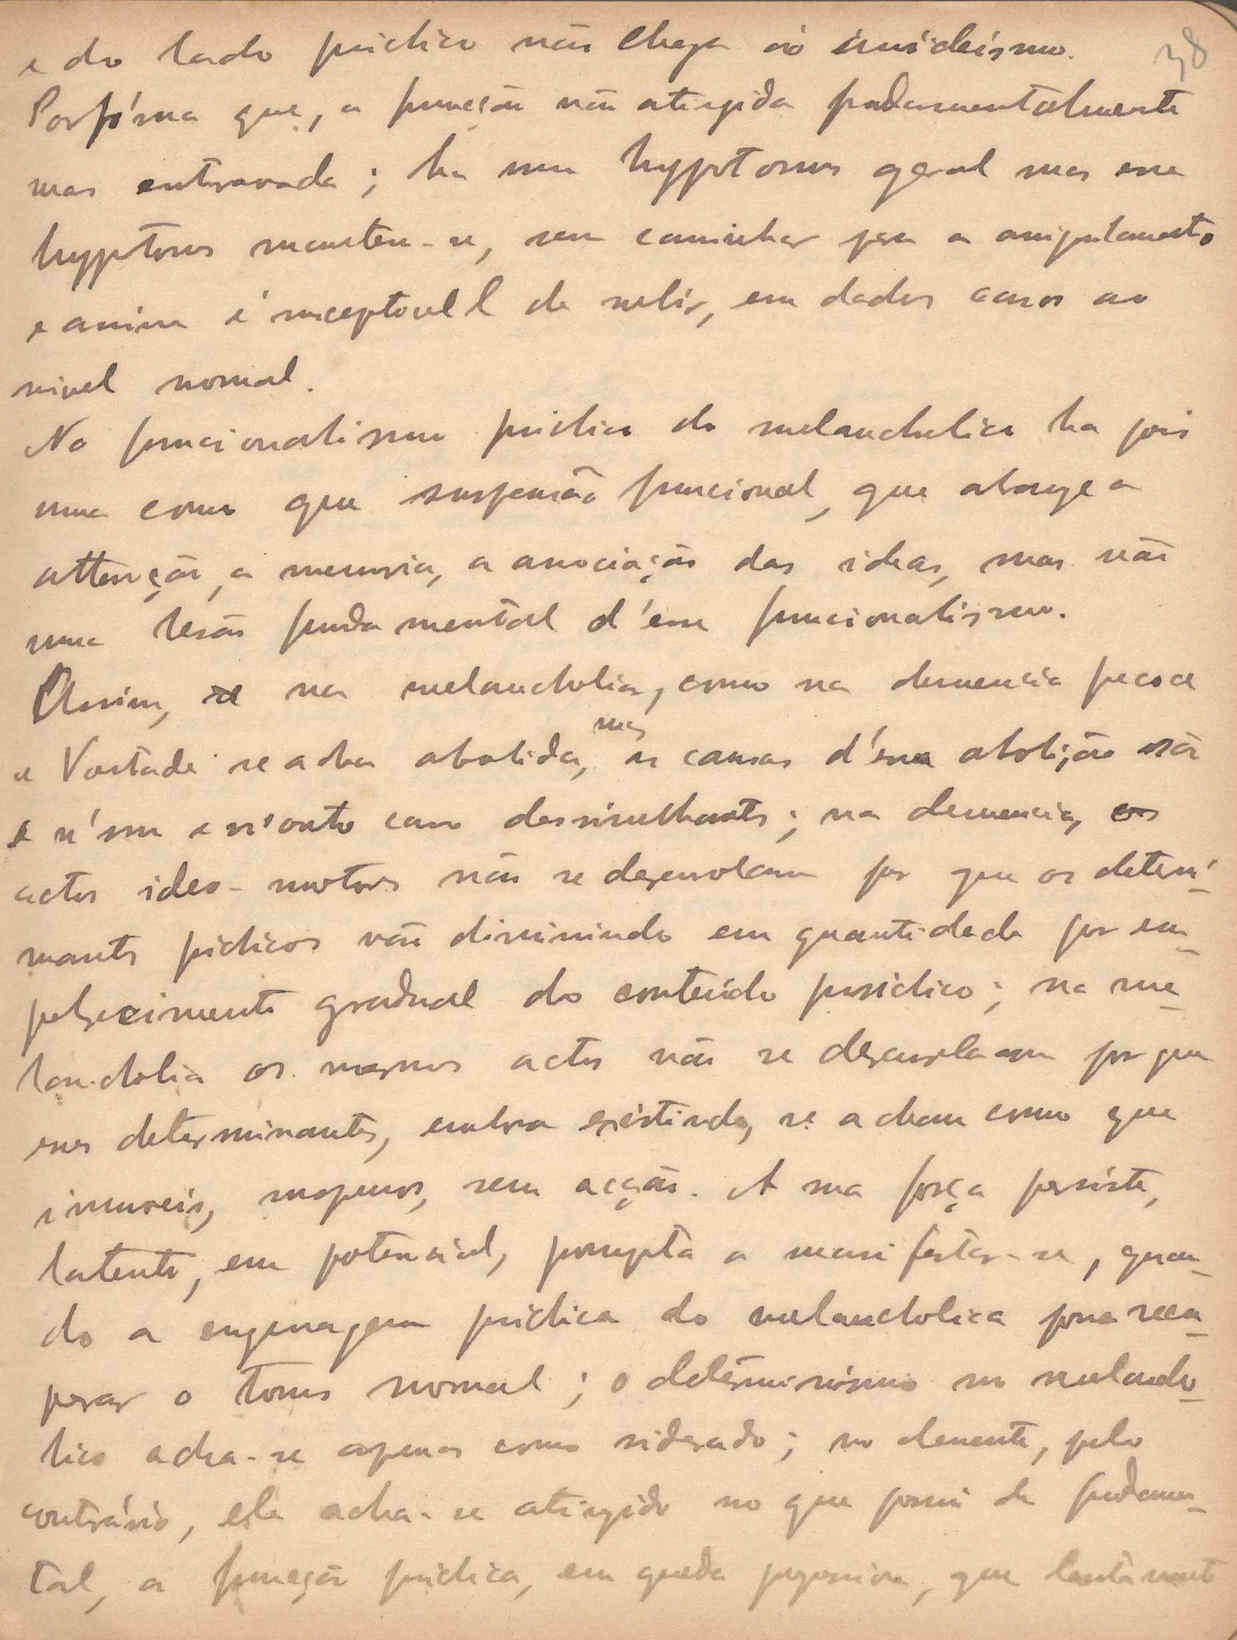 38
e do lado psichico não chega ao suicidismo.
Por fórma que, a funcção não atingida fundamentalmente
mas entravada; ha um hypotonus geral mas esse
hypotonus mantem-se, sem caminhar para o aniquilamento
e assim é susceptovell de subir, em dados casos ao
nivel normal.
No funcionalismo psichico do melancholico ha pois
uma como que suspensão funcional, que abange a
attenção, a memoria, a associação das ideas, mas não
uma lesão fundamental d'esse funcionalismo.
Assim, se na melancholia, como na demencia precoce
a Vontade se acha abolida, mas as causas d'essa abolição são
n'um e n'outo caso dessimelhantes; na demencia, os
actos ideo-motores não se desenrolam por que os determi-
nantes psichicos vão diminuindo em quantidade por em-
pobrecimento gradual do conteúdo psichico; na me-
lancholia os mesmos actos não se desenrolam por que
esses determinantes, embora existindo, se acham como que
immoveis, suspensos, sem acção. A sua força persiste,
latente, em potencial, prompta a manifestar-se, quan-
do a engrenagem psichica do melancholico possa recu-
perar o tonus normal; o determinismo no melancho-
lico acha-se apenas como siderado; no demente, pelo
contrário, ele acha-se atingido no que possui de fundamen-
tal, a funcção psichica, em queda progressiva, que lentamente